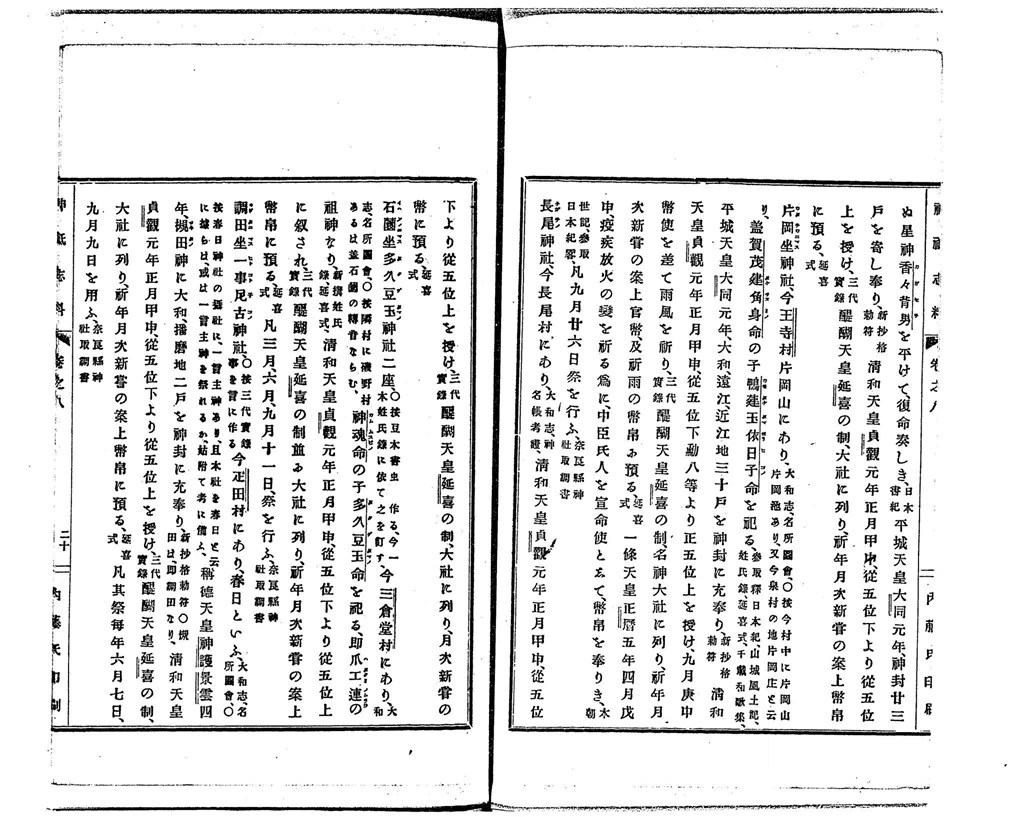 ぬ星神香々背男を平けて、復命奏しき、日本書紀平城天皇大同元年、神封廿三
戸を寄し奉り、新抄格勅符清和天皇貞觀元年正月甲申、從五位下より從五位
上を授け、三代實錄醍醐天皇延喜の制、大社に列り、祈年月次新嘗の案上幣帛
に預る、延喜式
片岡坐神社、今王寺村片岡山にあり、大和志、名所圖會、〇按今村中に片岡山片岡池あり、又今泉村の地片岡庄と云り、
蓋賀茂建角身命の子鴨建玉依日子命を祀る、參取釋日本紀、山城風土記、姓氏錄、延喜式、千載和歌集、
平城天皇大同元年、大和遠江、近江地三十戸を神封に充奉り、新抄格勅符清和
天皇貞觀元年正月甲申、從五位下勳八等より正五位上を授け、九月庚申
幣使を差て雨風を祈り、三代實錄醍醐天皇延喜の制、名神大社に列り、祈年月
次新嘗の案上官幣及祈雨の幣帛に預る、延喜式一條天皇正曆五年四月戊
申、疫疾放火の變を祈る爲に中臣氏人を宣命使として、幣帛を奉りき、本朝
世紀、參取日本紀畧、凡九月廿六日祭を行ふ、奈良縣神社取調書
長尾神社、今長尾村にあり、大和志、神名帳考證、清和天皇貞觀元年正月甲申、從五位
下より從五位上を授け、三代實錄醍醐天皇延喜の制、大社に列り、月次新嘗の
幣に預る、延喜式
石園坐多久豆玉神社二座、〇按豆本書虫作る、今一本姓氏錄に依て之を訂す、今三倉堂村にあり、大和
志、名所圖會、〇按隣村に礒野村あるは蓋石園の轉音ならむ、神魂命の子多久豆玉命を祀る、即爪工連の
祖神なり、新撰姓氏錄、延喜式、清和天皇貞觀元年正月甲申、從五位下より從五位上
に叙され、三代實錄醍醐天皇延喜の制並に大社に列り、祈年月次新嘗の案上
幣帛に預る、延喜式凡三月、六月、九月十一日、祭を行ふ、奈良縣神社取調書
調田坐一事尼古神社、〇按三代實錄事を言に作る今疋田村にあり、春日といふ、大和志、名所圖會、〇
按春日神社の攝社に、一言主神あり、且本社を春日と云に據らは、或は一言主神を祭れるか、姑附て考に備ふ、稱德天皇神護景雲四
年、槻田神に大和播磨地二戸を神封に充奉り、新抄格勅符〇槻田は、即調田なり、清和天皇
貞觀元年正月甲申、從五位下より從五位上を授け、三代實錄醍醐天皇延喜の制、
大社に列り、祈年月次新嘗の案上幣帛に預る、延喜式凡其祭每年六月七日、
九月九日を用ふ、奈良縣神社取調書
二十